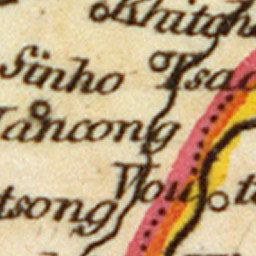 Khitch
Sinho
Tsac
Tancong
Vou
tsong